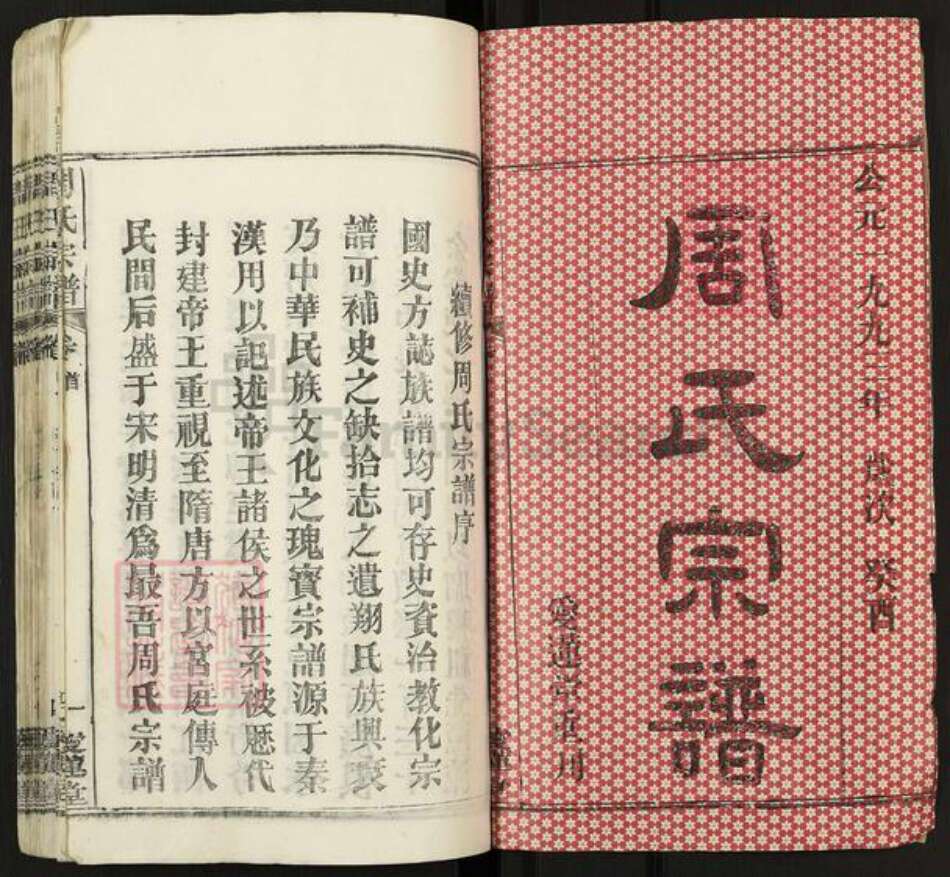 公元一九九三年 歲次 癸酉
周氏宗譜
愛蓮堂重刊
續修周氏宗譜序
國史方誌族譜均可存史資治教化宗
譜可補史之缺拾志之遺翔氏族興衰
乃中華民族文化之瑰寶宗譜源于秦
漢用以記述帝王諸侯之世系被歷代
封建帝王重視至隋唐方以宮庭傳入
民間后盛于宋明清爲最吾周氏宗譜
周氏宗譜 卷首 一 愛蓮堂